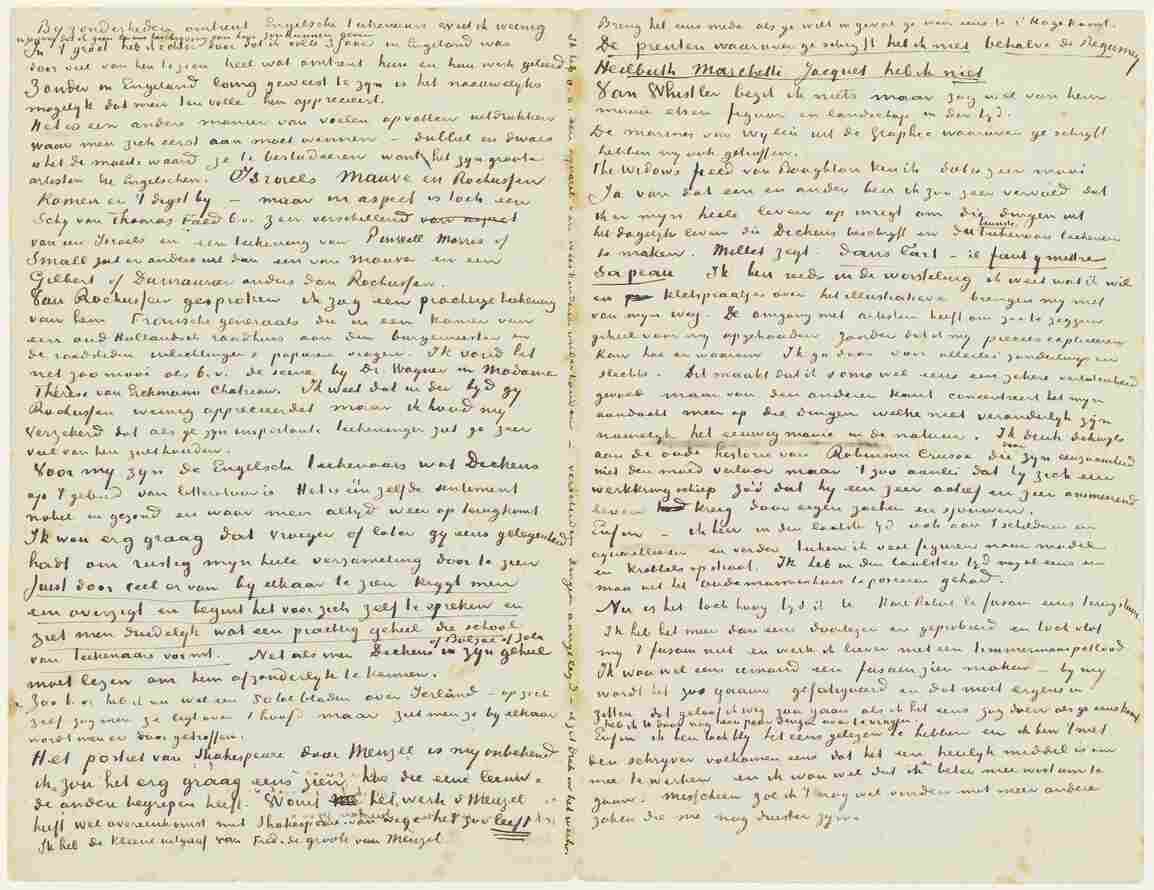 Byzonderheden omtrent Engelsche teekenaars weet ik weinig
In 't groot heb ik echter door dat ik ruim 3 jaar in Engeland was
door veel van hen te zien heel wat omtrent hun en hun werk geleerd
Zonder in Engeland lang geweest te zyn is het naauwelyks
mogelyk dat men ten volle hen apprecieert.
Het is een andere manier van voelen opvatten uitdrukken
waar men zich eerst aan moet wennen – dubbel en dwars
is het de moeite waard ze te bestudeeren want het zyn groote
artisten die Engelschen. Israels Mauve en Rochussen
komen er 't digst by – maar in aspect is toch een
Schij van Thomas Faed b.v. zeer verschillend van aspect
van een Israels en een teekening van Pinwell Morris of
Small ziet er anders uit dan een van Mauve en een
Gilbert of Dumaurier anders dan Rochussen.
Van Rochussen gesproken ik zag een prachtige teekening
van hem Fransche generaals die in een kamer van
een oud Hollandsch raadhuis aan den burgemeester en
de raadsleden inlichtingen & papieren vragen. Ik vond het
net zoo mooi als b.v. de scene by Dr Wagner in Madame
Thérèse van Erckmann Chatrian. Ik weet dat in der tyd gy
Rochussen weinig apprecieerdet maar ik houd my
verzekerd dat als ge zyn importante teekeningen ziet ge zeer
veel van hem zult houden.
Voor my zyn de Engelsche teekenaars wat Dickens
op 't gebied van litteratuur is. Het is één zelfde sentiment
nobel en gezond en waar men altyd weer op terugkomt
Ik wou erg graag dat vroeger of later gy eens gelegenheid
hadt om rustig myn heele verzameling door te zien
Juist door veel er van by elkaar te zien krygt men
een overzigt en begint het voor zich zelf te spreken en
ziet men duidelyk wat een prachtig geheel die school
of Balzac of Zola
van teekenaars vormt. Net als men Dickens in zyn geheel
moet lezen om hem afzonderlyk te kennen.
Zoo b.v. heb ik nu wel een 50tal bladen over Ierland – op zich
zelf zag men ze ligt over 't hoofd maar ziet men ze by elkaar
wordt men er door getroffen.
Het portret van Shakespeare door Menzel is my onbekend
ik zou het erg graag eens zien hoe die eene leeuw
de andere begrepen heeft. Want het werk v Menzel
heeft wel overeenkomst met Shakespeare van wege het zoo leeft
Ik heb de kleine uitgaaf van Fred. de groote van Menzel
Breng het eens mede als ge wilt ingeval ge van eens te 's Hage komt.
De prenten waarover ge schryft heb ik niet behalve de Regamey
Heilbuth Marchetti Jacquet heb ik niet
Van Whistler bezit ik niets maar zag wel van hem
mooie etsen figuur en landschap in der tyd.
De marines van Wyllie uit de Graphic waarover ge schryft
hebben my ook getroffen.
The Widows field van Boughton ken ik dat is zeer mooi
Ja van dat een en ander ben ik zoo zeer vervuld dat
ik er myn heele leven op inrigt om die dingen uit
het dagelyksch leven die Dickens beschryft en die teekenaars teekenen
te maken. Millet zegt. Dans l'art – il faut y mettre
sa peau Ik ben reeds in de worsteling ik weet wat ik wil
en kletspraatjes over het illustratieve brengen my niet
van myn weg. De omgang met artisten heeft om zoo te zeggen
geheel voor my opgehouden zonder dat ik my precies expliceeren
kan hoe en waarom Ik ga door voor allerlei zonderlings en
slechts. Dit maakt dat ik somswel eens een zekere verlatenheid
gevoel maar van den anderen kant concentreert het myn
aandacht meer op die dingen welke niet veranderlyk zyn
namelyk het eeuwig mooie in de natuur. Ik denk dikwyls
aan de oude historie van Robinson Crusoe die in zyn eenzaamheid
niet den moed verloor maar 't zoo aanlei dat hy zich een
werkkring schiep zóó dat hy een zeer actief en zeer animeerend
leven kreeg door eigen zoeken en sjouwen.
Enfin – ik ben in den laatsten tyd ook aan 't schilderen en
aquarelleeren en verder teeken ik veel figuren naar model
en krabbels op straat. Ik heb in den laatsten tyd nogal eens een
man uit het oudemannenhuis te poseeren gehad.
Nu is het toch hoog tyd ik te Karl Robert le fusain eens terug stuur
Ik heb het meer dan eens doorlezen en geprobeerd en toch vlot
my 't fusain niet en werk ik liever met een timmermanspotlood
Ik wou wel eens iemand een fusain zien maken – by my
wordt het zoo gaauw gefatigueerd en dat moet ergens in
zitten dat geloof ik weg zou gaan als ik het eens zag doen als ge eens komt
heb ik te door nog een paar dingen over te vragen.
Enfin ik ben toch bly het eens gelezen te hebben en ik ben 't met
den schryver volkomen eens dat het een heerlyk middel is om
mee te werken en ik wou wel dat ik beter mee wist om te
gaan. Misschien zoek ik 't nog wel vinden met meer andere
zaken die me nog duister zyn.